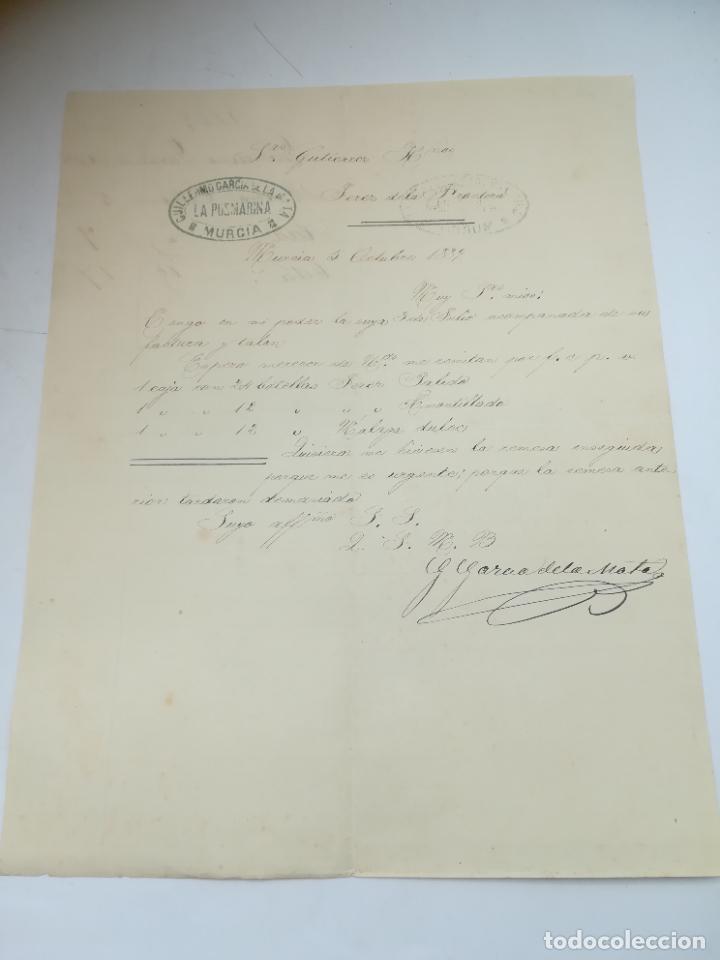 Sres Gutierrez Hnos
GUILLERMO GARCIA DE LA MATA
LA POSMARINA
MURCIA
Jerez de la Frontera
Murcia 5 Octubre 1889
Muy Sres mios:
Tengo en mi poder la suya 3 de Julio acompanada de su
factura y talon
Espero merecer de Vds. me remitan por f. c. p. v
1 caja con 24 botellas Jerez Palido
1 " " 12 " " " Amontillado
1 " " 12 " Malaga dulce
Quisiera me hiciesen la remesa enseguida
porque me es urgente; porque la remesa ante-
rior tardaron demasiado
Suyo affmo S. S.
Q. S. M. B
G Garcia de la Mata
todocoleccion
todocoleccion.net